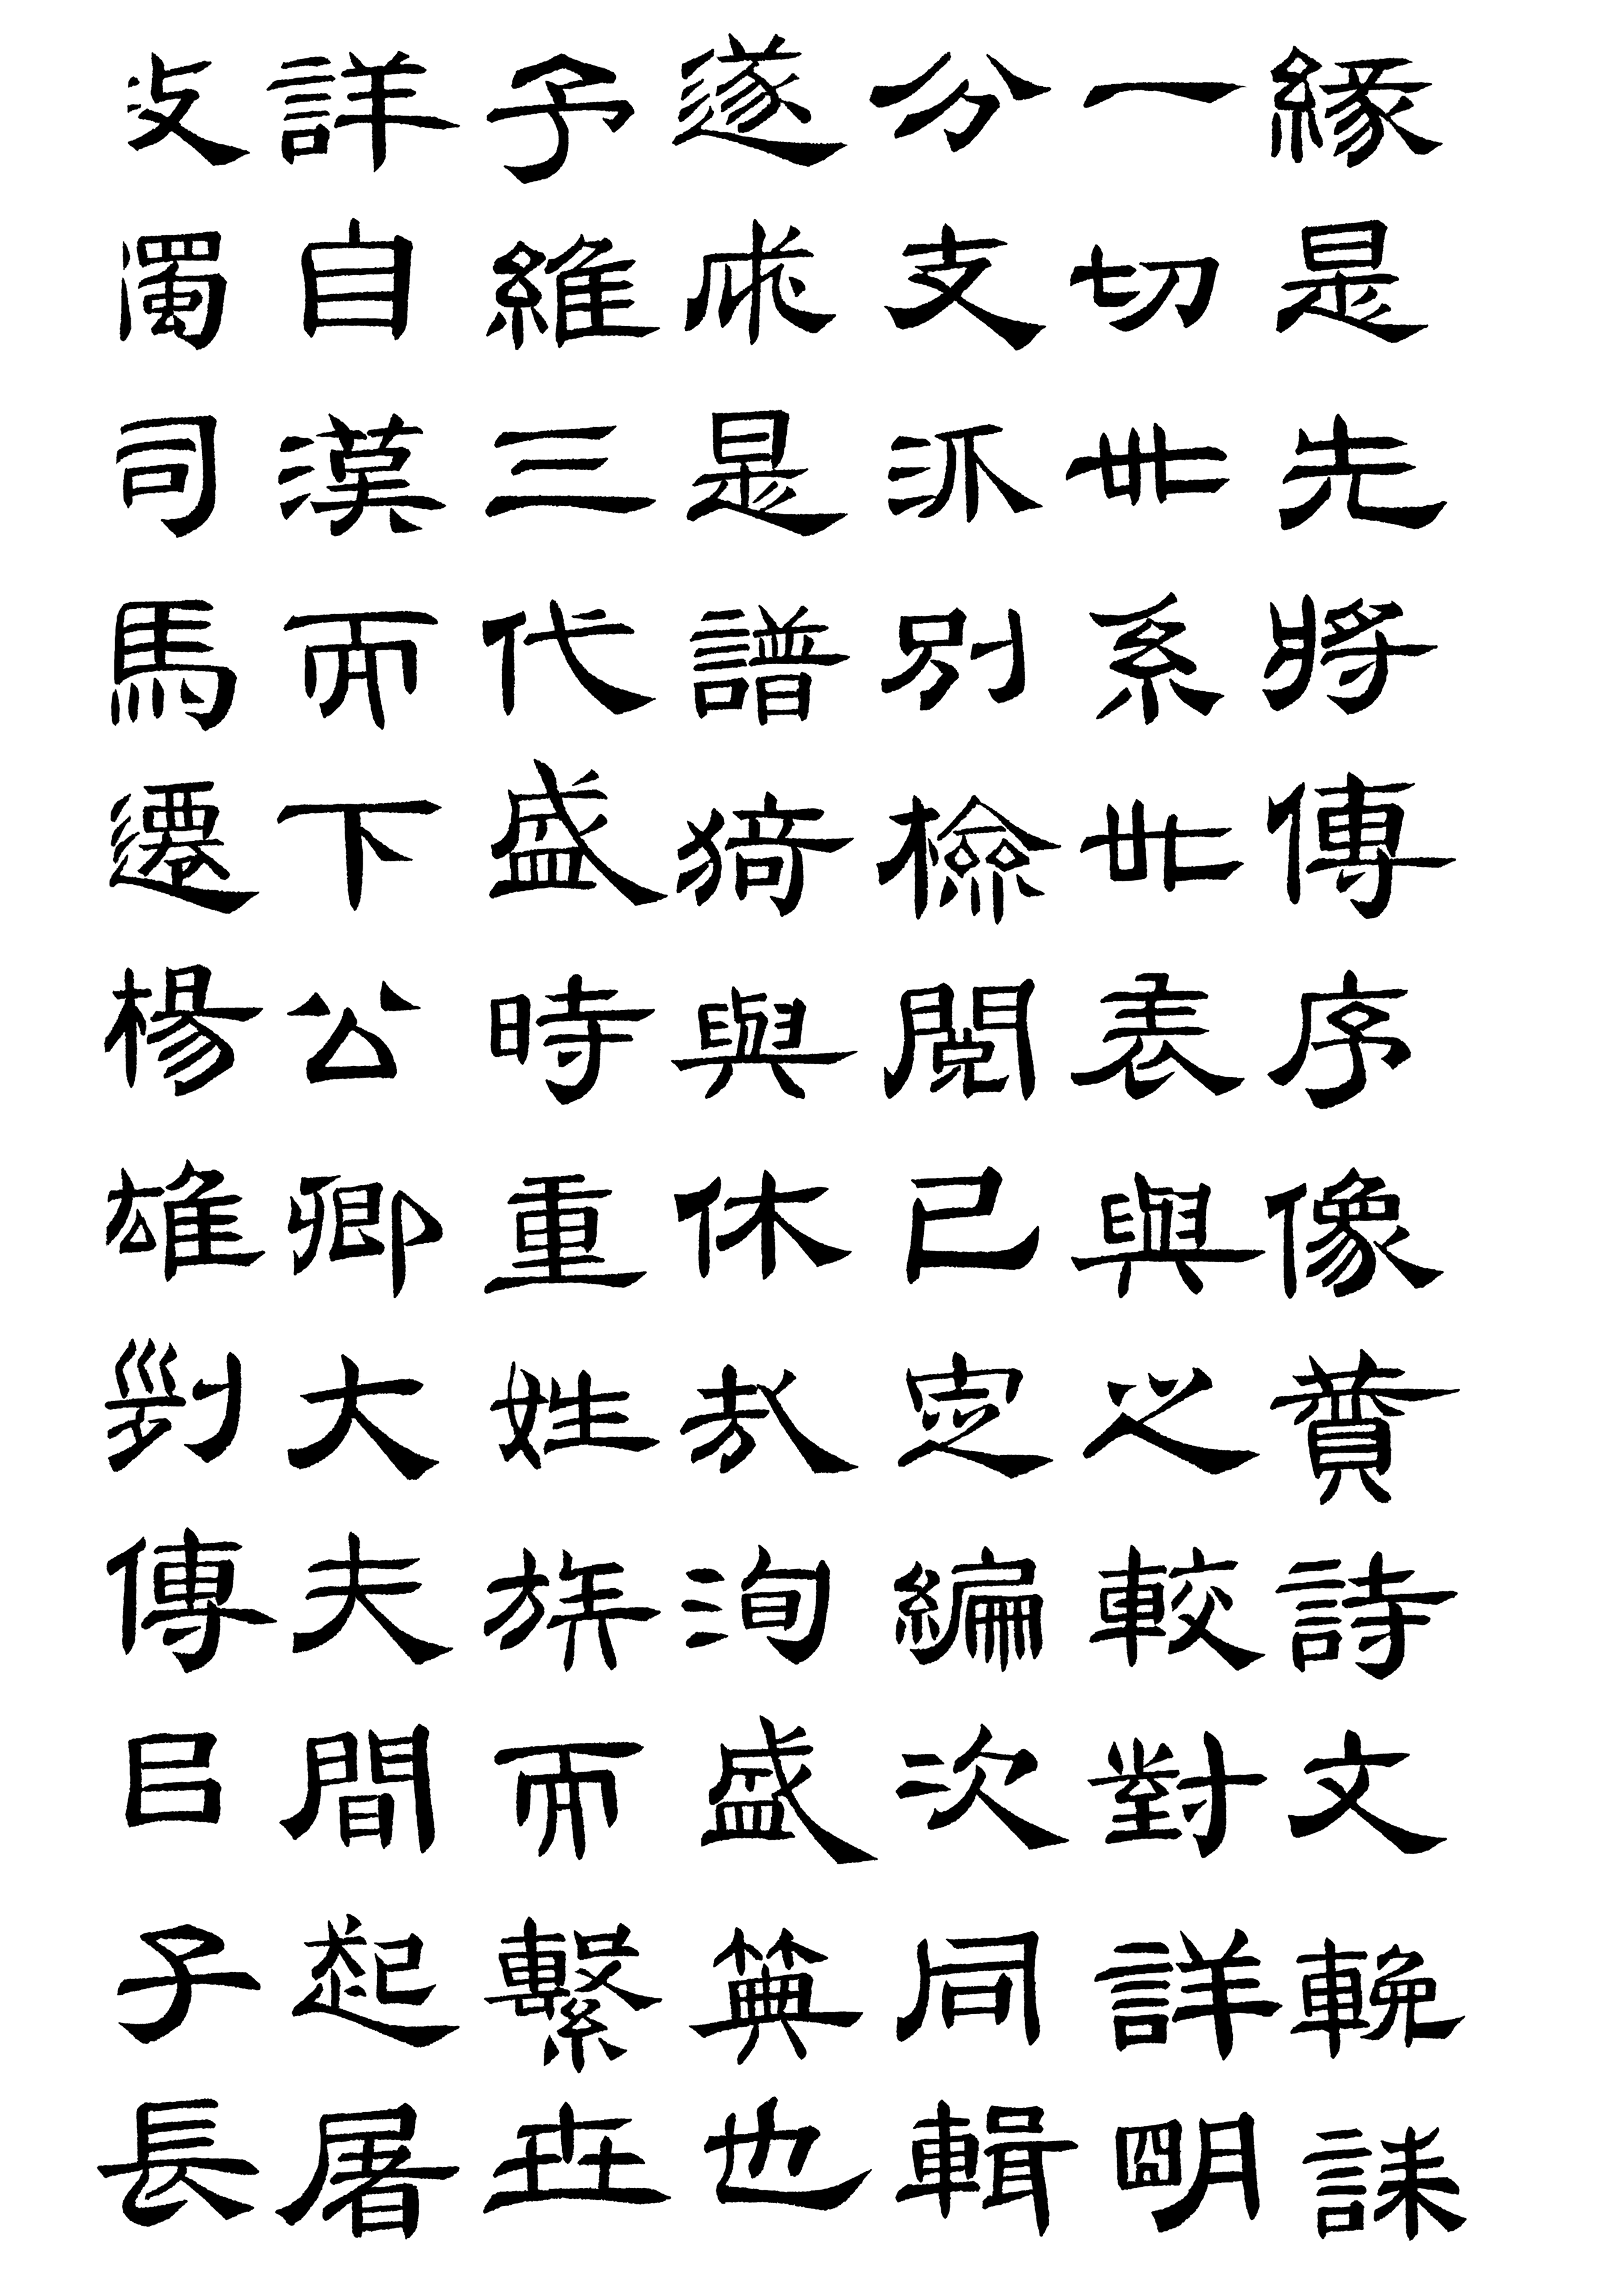 緣是先將傳序像贊詩文輓誄
一切世系世表與之較對詳明
分支派別檢閱已定編次同輯
遂成是譜猗與休哉洵盛典也
予維三代盛時重姓族而繫世
詳自漢而下公卿大夫間起屠
沒獨司馬遷楊雄劉傳曰子長